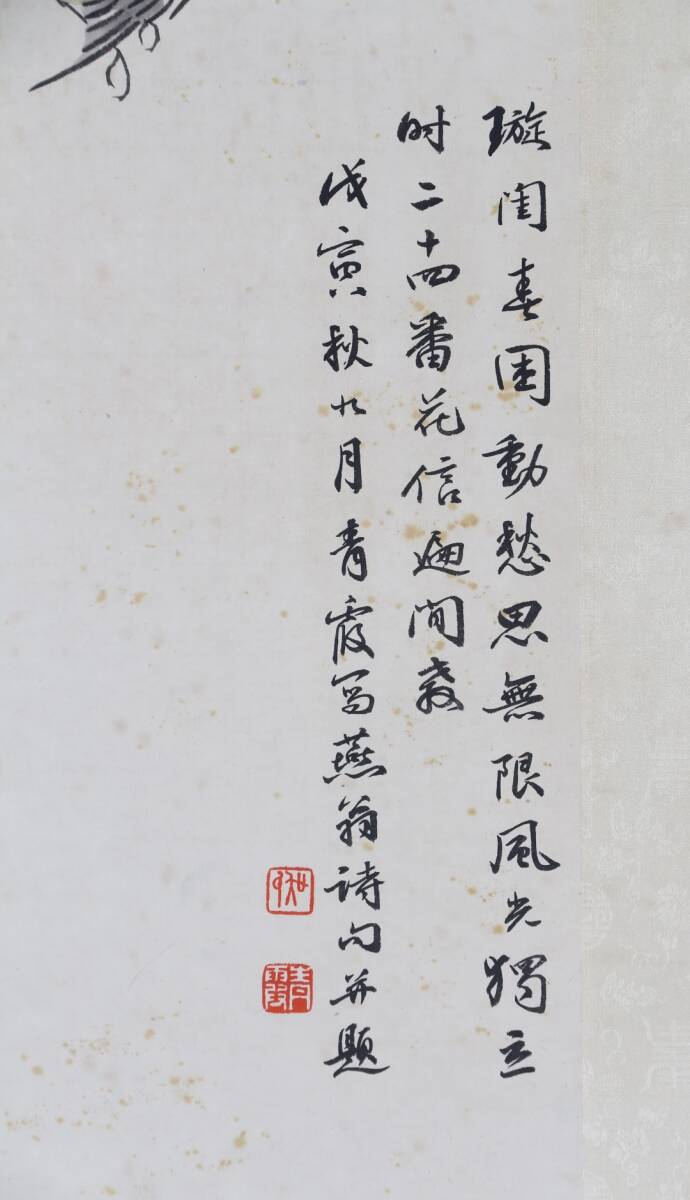 璇闺春困動愁思無限風光獨立
时二十四番花信遍閒教
戊寅秋九月青霞写燕翁詩句并題
青霞